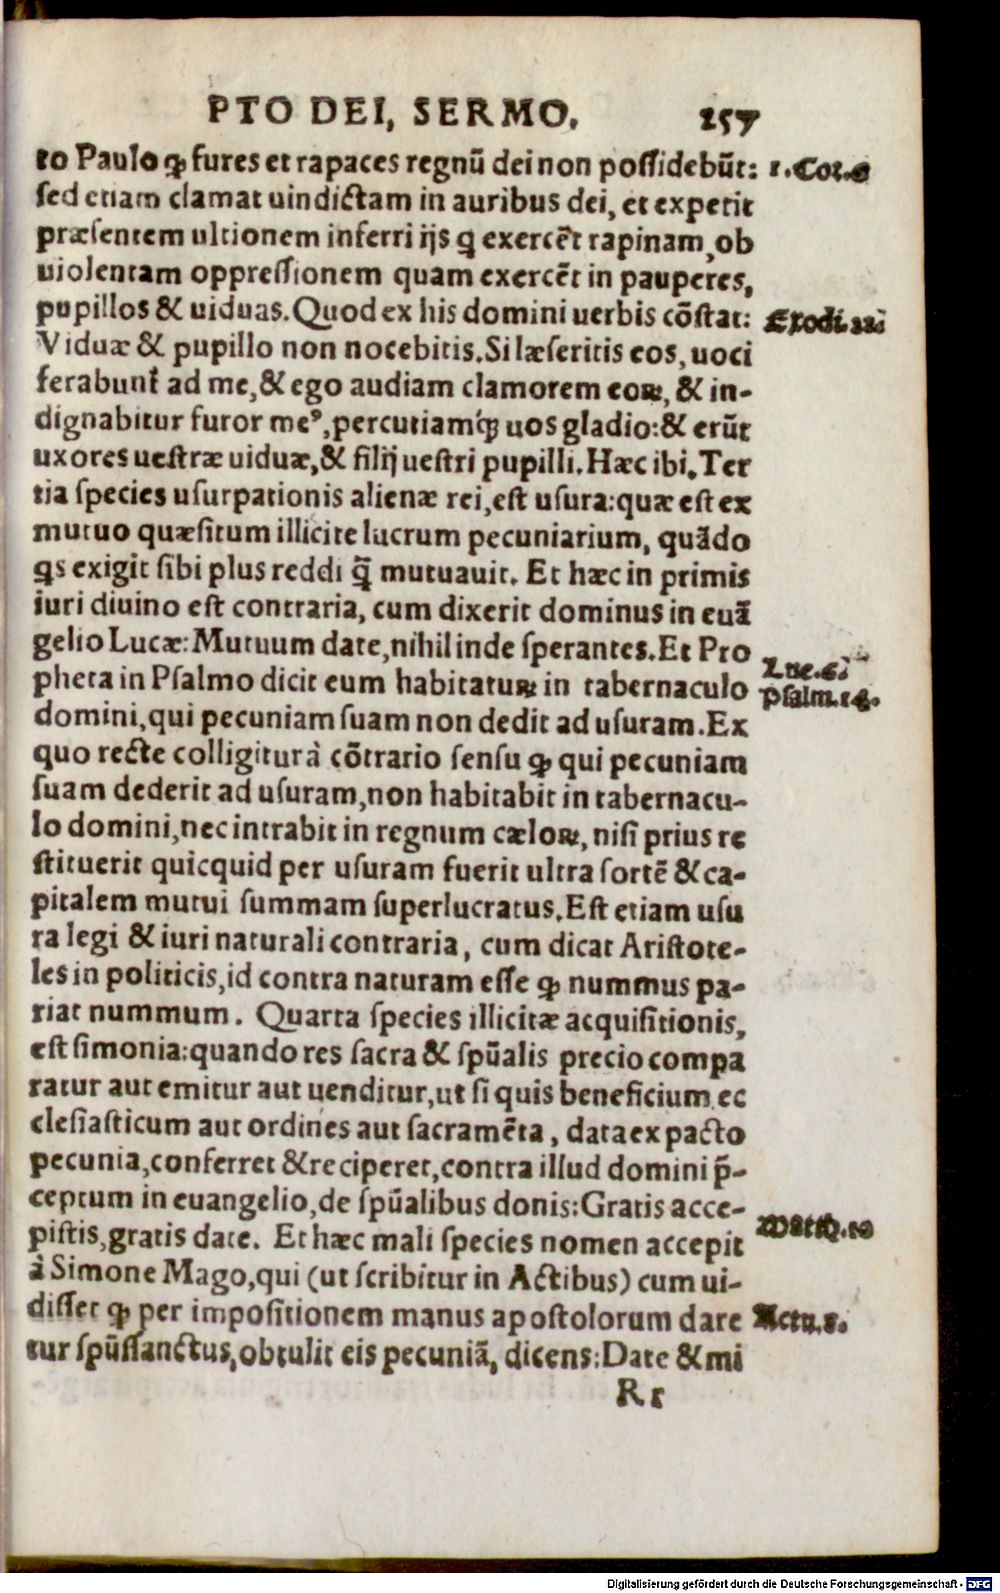 PTO DEI, SERMO. 257
to Paulo ꝙ fures et rapaces regnū dei non possidebūt: 1.Cor.6
sed etiam clamat uindictam in auribus dei, et expetit
præsentem ultionem inferri ijs q̄ exercēt rapinam, ob
uiolentam oppressionem quam exercēt in pauperes,
pupillos & uiduas. Quod ex his domini uerbis cōstat: Exodi.22.
Viduæ & pupillo non nocebitis. Si læseritis eos, uoci
ferabunt ad me, & ego audiam clamorem eoꝝ, & in-
dignabitur furor meꝰ, percutiamq́ꝫ uos gladio: & erūt
uxores uestræ uiduæ, & filij uestri pupilli. Hæc ibi. Ter
tia species usurpationis alienæ rei, est usura: quæ est ex
mutuo quæsitum illicite lucrum pecuniarium, quādo
qs exigit sibi plus reddi q̄̃ mutuauit. Et hæc in primis
iuri diuino est contraria, cum dixerit dominus in euā
gelio Lucæ: Mutuum date, nihil inde sperantes. Et Pro Luc.6.
pheta in Psalmo dicit eum habitatuꝝ in tabernaculo Psalm.14.
domini, qui pecuniam suam non dedit ad usuram. Ex
quo recte colligitur à cōtrario sensu ꝙ qui pecuniam
suam dederit ad usuram, non habitabit in tabernacu-
lo domini, nec intrabit in regnum cæloꝝ, nisi prius re
stituerit quicquid per usuram fuerit ultra sortē & ca-
pitalem mutui summam superlucratus. Est etiam usu
ra legi & iuri naturali contraria, cum dicat Aristote-
les in politicis, id contra naturam esse ꝙ nummus pa-
riat nummum. Quarta species illicitæ acquisitionis,
est simonia: quando res sacra & spūalis precio compa
ratur aut emitur aut uenditur, ut si quis beneficium ec
clesiasticum aut ordines aut sacramēta, data ex pacto
pecunia, conferret & reciperet, contra illud domini p̄-
ceptum in euangelio, de spūalibus donis: Gratis acce-
pistis, gratis date. Et hæc mali species nomen accepit Matth.10
à Simone Mago, qui (ut scribitur in Actibus) cum ui-
disset ꝙ per impositionem manus apostolorum dare Actu.8.
tur spūssanctus, obtulit eis pecuniā, dicens: Date & mi
R 1
Digitalisierung gefördert durch die Deutsche Forschungsgemeinschaft - DFG